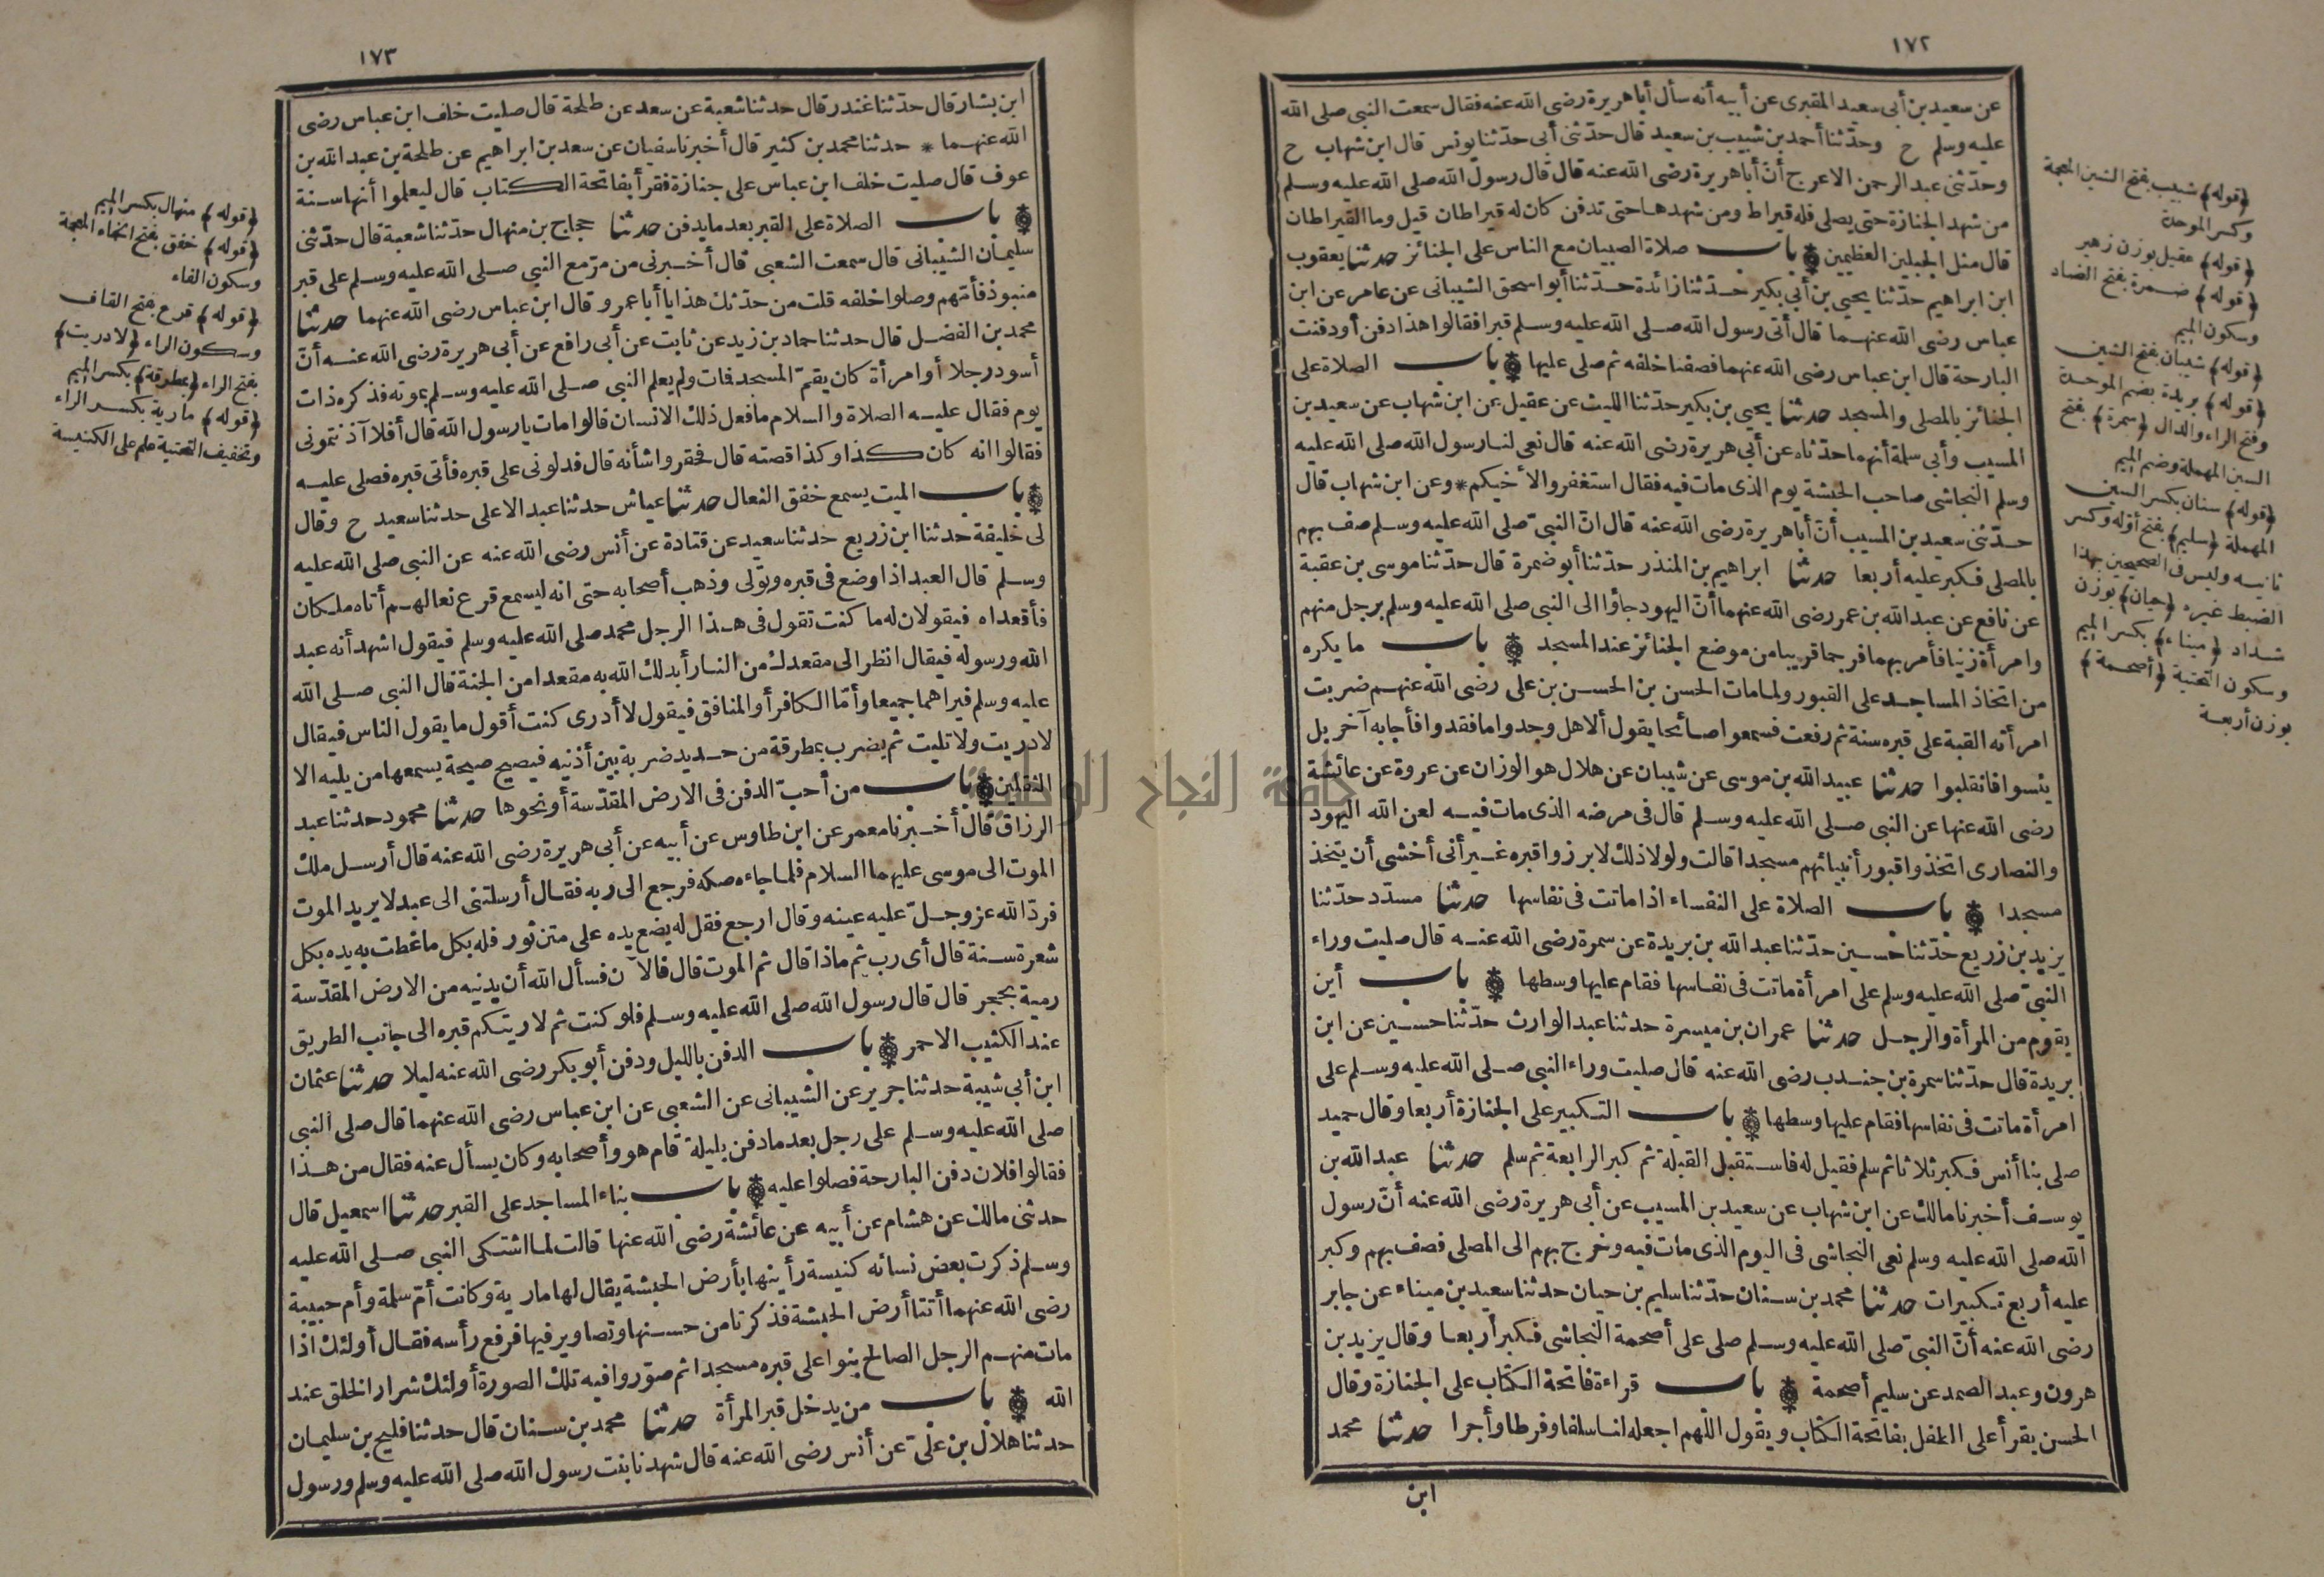 ١٧٢
عن سعيد بن أبى سعيد المقبرى عن أبيه أنه سأل أبا هريرة رضى الله عنه فقال سمعت النبى صلى الله
عليه وسلم ح وحدّثنا أحمد بن شبيب بن سعيد قال حدّثنى أبى حدّثنا يونس قال ابن شهاب ح
وحدّثنى عبد الرحمن الاعرج أنّ أبا هريرة رضى الله عنه قال قال رسول الله صلى الله عليه وسلم
من شهد الجنازة حتى يصلى فله قيراط ومن شهدها حتى تدفن كان له قيراطان قيل وما القيراطان
قال مثل الجبلين العظيمين باب صلاة الصبيان مع الناس على الجنائز حدثنا يعقوب
ابن ابراهيم حدّثنا يحيى بن أبى بكير حدّثنا زائدة حدّثنا أبو اسحق الشيبانى عن عامر عن ابن
عباس رضى الله عنهما قال أتى رسول الله صلى الله عليه وسلم قبرا فقالوا هذا دفن أو دفنت
البارحة قال ابن عباس رضى الله عنهما فصفنا خلفه ثم صلى عليها باب الصلاة على
الجنائز بالمصلى والمسجد حدثنا يحيى بن بكير حدّثنا الليث عن عقيل عن ابن شهاب عن سعيد بن
المسيب وأبى سلمة أنهما حدّثاه عن أبى هريرة رضى الله عنه قال نعى لنا رسول الله صلى الله عليه
وسلم النجاشى صاحب الحبشة يوم الذى مات فيه فقال استغفروا لأخيكم * وعن ابن شهاب قال
حدّثنى سعيد بن المسيب أنّ أبا هريرة رضى الله عنه قال انّ النبىّ صلى الله عليه وسلم صف بهم
بالمصلى فكبر عليه أربعا حدثنا ابراهيم بن المنذر حدّثنا أبو ضمرة قال حدّثنا موسى بن عقبة
عن نافع عن عبد الله بن عمر رضى الله عنهما أنّ اليهود جاؤا الى النبى صلى الله عليه وسلم برجل منهم
وامرأة زنيا فأمر بهما فرجما قريبا من موضع الجنائز عند المسجد باب ما يكره
من اتخاذ المساجد على القبور ولما مات الحسن بن الحسن بن على رضى الله عنهم ضربت
امرأته القبة على قبره سنة ثم رفعت فسمعوا صائحا يقول ألا هل وجدوا ما فقدوا فأجابه آخر بل
يئسوا فانقلبوا حدثنا عبيد الله بن موسى عن شيبان عن هلال هو الوزان عن عروة عن عائشة
رضى الله عنها عن النبى صلى الله عليه وسلم قال فى مرضه الذى مات فيه لعن الله اليهود
والنصارى اتخذوا قبور أنبيائهم مسجدا قالت ولولا ذلك لابرزوا قبره غير أنى أخشى أن يتخذ
مسجدا باب الصلاة على النفساء اذا ماتت فى نفاسها حدثنا مسدّد حدّثنا
يزيد بن زريع حدّثنا حسين حدّثنا عبد الله بن بريدة عن سمرة رضى الله عنه قال صليت وراء
النبىّ صلى الله عليه وسلم على امرأة ماتت فى نفاسها فقام عليها وسطها باب أين
يقوم من المرأة والرجل حدثنا عمران بن ميسرة حدثنا عبد الوارث حدّثنا حسين عن ابن
بريدة قال حدّثنا سمرة بن جندب رضى الله عنه قال صليت وراء النبى صلى الله عليه وسلم على
امرأة ماتت فى نفاسها فقام عليها وسطها باب التكبير على الجنازة أربعا وقال حميد
صلى بنا أنس فكبر ثلاثا ثم سلم فقيل له فاستقبل القبلة ثم كبر الرابعة ثم سلم حدثنا عبد الله بن
يوسف أخبرنا مالك عن ابن شهاب عن سعيد بن المسيب عن أبى هريرة رضى الله عنه أنّ رسول
الله صلى الله عليه وسلم نعى النجاشى فى اليوم الذى مات فيه وخرج بهم الى المصلى فصف بهم وكبر
عليه أربع تكبيرات حدثنا محمد بن سنان حدّثنا سليم بن حيان حدثنا سعيد بن ميناء عن جابر
رضى الله عنه أنّ النبىّ صلى الله عليه وسلم صلى على أصحمة النجاشى فكبر أربعا وقال يزيد بن
هرون وعبد الصمد عن سليم أصحمة باب قراءة فاتحة الكتاب على الجنازة وقال
الحسن يقرأ على الطفل بفاتحة الكتاب ويقول اللهم اجعله لنا سلفا وفرطا وأجرا حدثنا محمد
ابن
﴿قوله﴾ شبيب بفتح الشين المعجمة
وكسر الموحدة
﴿قوله﴾ عقيل بوزن زهير
﴿قوله﴾ ضمرة بفتح الضاد
وسكون الميم
﴿قوله﴾ شيبان بفتح الشين
﴿قوله﴾ بريدة بضم الموحدة
وفتح الراء والدال ﴿سمرة﴾ بفتح
السين المهملة وضم الميم
﴿قوله﴾ سنان بكسر السين
المهملة ﴿سليم﴾ بفتح أوّله وكسر
ثانيه وليس فى الصحيحين بهذا
الضبط غيره ﴿حيان﴾ بوزن
شداد ﴿ميناء﴾ بكسر الميم
وسكون التحتية ﴿أصحمة﴾
بوزن أربعة
١٧٣
ابن بشار قال حدّثنا غندر قال حدثنا شعبة عن سعد عن طلحة قال صليت خلف ابن عباس رضى
الله عنهما * حدثنا محمد بن كثير قال أخبرنا سفيان عن سعد بن ابراهيم عن طلحة بن عبد الله بن
عوف قال صليت خلف ابن عباس على جنازة فقرأ بفاتحة الكتاب قال ليعلموا أنها سنة
باب الصلاة على القبر بعد ما يدفن حدثنا حجاج بن منهال حدّثنا شعبة قال حدّثنى
سليمان الشيبانى قال سمعت الشعبى قال أخبرنى من مرّ مع النبى صلى الله عليه وسلم على قبر
منبوذ فأمّهم وصلوا خلفه قلت من حدّثك هذا يا أبا عمرو قال ابن عباس رضى الله عنهما حدثنا
محمد بن الفضل قال حدثنا حماد بن زيد عن ثابت عن أبى رافع عن أبى هريرة رضى الله عنه أنّ
أسود رجلا أو امرأة كان يقمّ المسجد فمات ولم يعلم النبى صلى الله عليه وسلم بموته فذكره ذات
يوم فقال عليه الصلاة والسلام ما فعل ذلك الانسان قالوا مات يا رسول الله قال أفلا آذنتمونى
فقالوا انه كان كذا وكذا قصته قال فحقروا شأنه قال فدلونى على قبره فأتى قبره فصلى عليه
باب الميت يسمع خفق النعال حدثنا عياش حدثنا عبد الاعلى حدثنا سعيد ح وقال
لى خليفة حدثنا ابن زريع حدثنا سعيد عن قتادة عن أنس رضى الله عنه عن النبى صلى الله عليه
وسلم قال العبد اذا وضع فى قبره وتولى وذهب أصحابه حتى انه ليسمع قرع نعالهم أتاه ملكان
فأقعداه فيقولان له ما كنت تقول فى هذا الرجل محمد صلى الله عليه وسلم فيقول اشهد أنه عبد
الله ورسوله فيقال انظر الى مقعدك من النار أبدلك الله به مقعدا من الجنة قال النبى صلى الله
عليه وسلم فيراهما جميعا وأمّا الكافر أو المنافق فيقول لا أدرى كنت أقول ما يقول الناس فيقال
لا دريت ولا تليت ثم يضرب بمطرقة من حديد ضربة بين أذنيه فيصيح صيحة يسمعها من يليه الا
الثقلين باب من أحبّ الدفن فى الارض المقدّسة أو نحوها حدثنا محمود حدثنا عبد
الرزاق قال أخبرنا معمر عن ابن طاوس عن أبيه عن أبى هريرة رضى الله عنه قال أرسل ملك
الموت الى موسى عليهما السلام فلما جاءه صكه فرجع الى ربه فقال أرسلتنى الى عبد لا يريد الموت
فردّ الله عز وجلّ عليه عينه وقال ارجع فقل له يضع يده على متن ثور فله بكل ما غطت به يده بكل
شعرة سنة قال أى رب ثم ماذا قال ثم الموت قال فالآن فسأل الله أن يدنيه من الارض المقدّسة
رمية بحجر قال قال رسول الله صلى الله عليه وسلم فلو كنت ثم لاريتكم قبره الى جانب الطريق
عند الكثيب الاحمر باب الدفن بالليل ودفن أبو بكر رضى الله عنه ليلا حدثنا عثمان
ابن أبى شيبة حدثنا جرير عن الشيبانى عن الشعبى عن ابن عباس رضى الله عنهما قال صلى النبى
صلى الله عليه وسلم على رجل بعد ما دفن بليلة قام هو وأصحابه وكان يسأل عنه فقال من هذا
فقالوا فلان دفن البارحة فصلوا عليه باب بناء المساجد على القبر حدثنا اسمعيل قال
حدثنى مالك عن هشام عن أبيه عن عائشة رضى الله عنها قالت لما اشتكى النبى صلى الله عليه
وسلم ذكرت بعض نسائه كنيسة رأينها بأرض الحبشة يقال لها مارية وكانت أمّ سلمة وأم حبيبة
رضى الله عنهما أتتا أرض الحبشة فذكرتا من حسنها وتصاوير فيها فرفع رأسه فقال أولئك اذا
مات منهم الرجل الصالح بنوا على قبره مسجدا ثم صوّروا فيه تلك الصورة أولئك شرار الخلق عند
الله باب من يدخل قبر المرأة حدثنا محمد بن سنان قال حدثنا فليح بن سليمان
حدثنا هلال بن علىّ عن أنس رضى الله عنه قال شهدنا بنت رسول الله صلى الله عليه وسلم ورسول
﴿قوله﴾ منهال بكسر الميم
﴿قوله﴾ خفق بفتح الخاء المعجمة
وسكون الفاء
﴿قوله﴾ قرع بفتح القاف
وسكون الراء ﴿لا دريت﴾
بفتح الراء ﴿بمطرقة﴾ بكسر الميم
﴿قوله﴾ مارية بكسر الراء
وتخفيف التحتية علم على الكنيسة
جامعة النجاح الوطنية